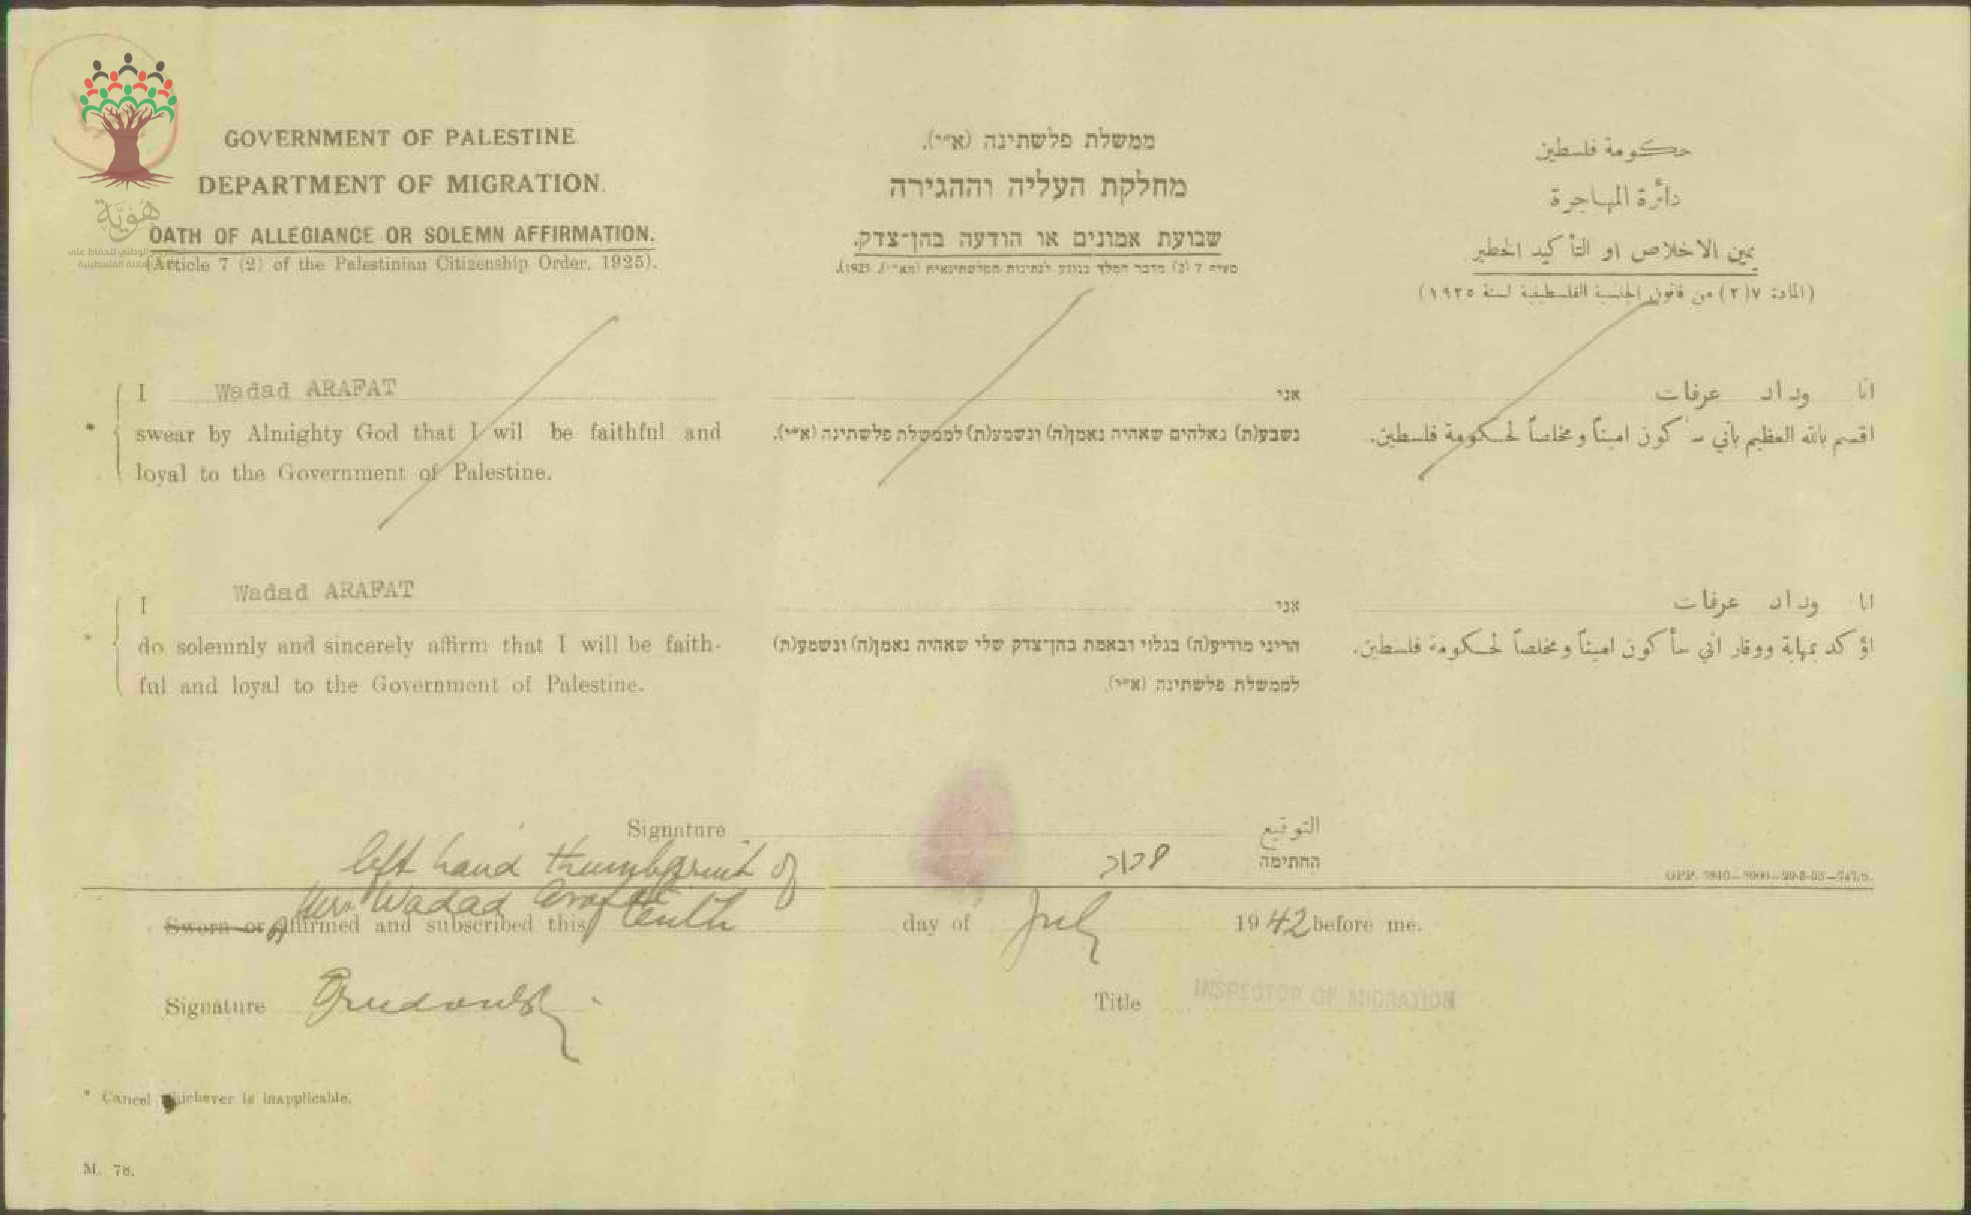 GOVERNMENT OF PALESTINE
DEPARTMENT OF MIGRATION.
OATH OF ALLEGIANCE OR SOLEMN AFFIRMATION.
(Article 7 (2) of the Palestinian Citizenship Order, 1925).
ממשלת פלשתינה (א״י).
מחלקת העליה וההגירה
שבועת אמונים או הודעה בהן־צדק.
حكومة فلسطين
دائرة المهاجرة
يمين الاخلاص او التأكيد الخطير
(المادة ٧(٢) من قانون الجنسية الفلسطينية لسنة ١٩٢٥)
هُوِيَّة
I Wadad ARAFAT
swear by Almighty God that I wil be faithful and
loyal to the Government of Palestine.
אני
נשבע(ת) באלהים שאהיה נאמן(ה) ונשמע(ת) לממשלת פלשתינה (א״י).
انا وداد عرفات
اقسم بالله العظيم بأني س كون اميناً ومخلصاً لحكومة فلسطين.
I Wadad ARAFAT
do solemnly and sincerely affirm that I will be faith-
ful and loyal to the Government of Palestine.
אני
הריני מודיע(ה) בגלוי ובאמת בהן־צדק שלי שאהיה נאמן(ה) ונשמע(ת)
לממשלת פלשתינה (א״י).
انا وداد عرفات
اؤكد بمهابة ووقار اني سأكون اميناً ومخلصاً لحكومة فلسطين.
Signature
التوقيع
החתימה
left hand thumbprint of
Mrs Wadad Arafat
Sworn or Affirmed and subscribed this tenth day of July 1942 before me.
Signature
Title INSPECTOR OF MIGRATION
* Cancel whichever is inapplicable.
M. 78.